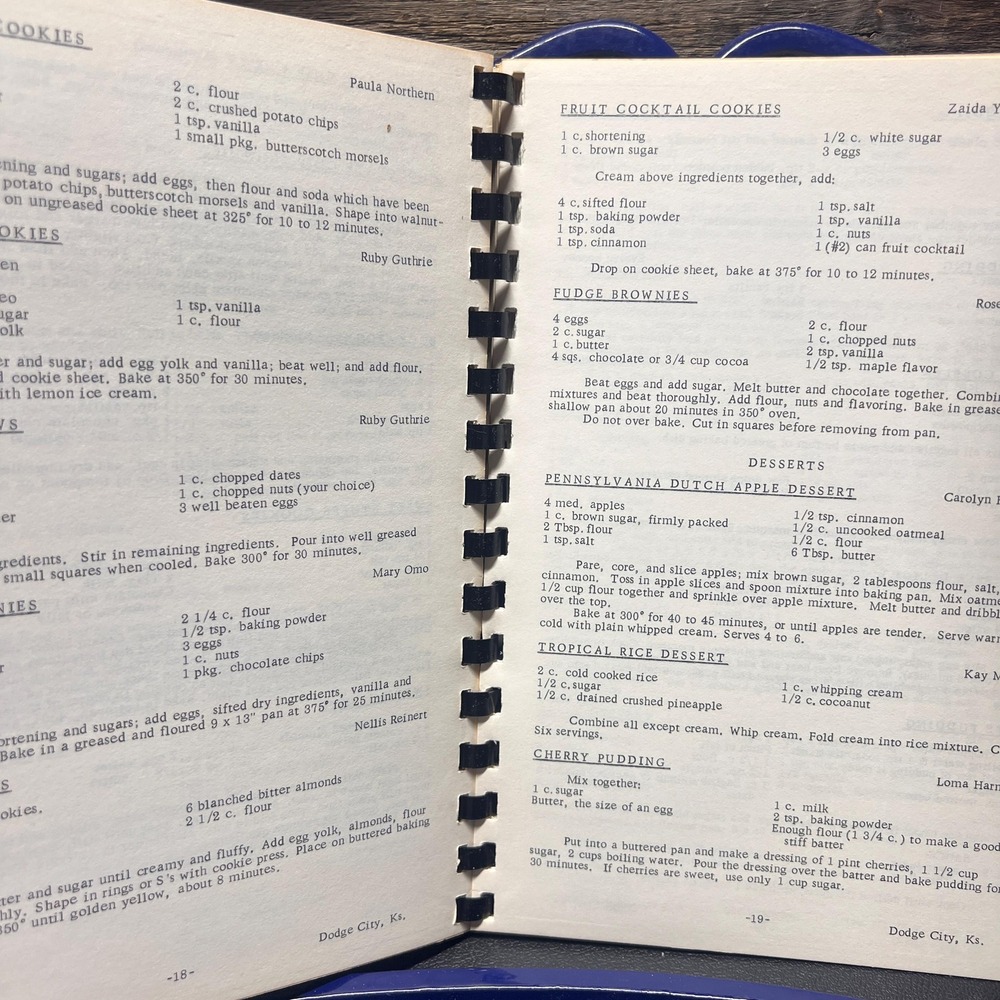 COOKIES
Paula Northern
2 c. flour
2 c. crushed potato chips
1 tsp. vanilla
1 small pkg. butterscotch morsels
ning and sugars; add eggs, then flour and soda which have been
potato chips, butterscotch morsels and vanilla. Shape into walnut-
on ungreased cookie sheet at 325° for 10 to 12 minutes.
OKIES
Ruby Guthrie
en
eo
ugar 1 tsp. vanilla
olk 1 c. flour
er and sugar; add egg yolk and vanilla; beat well; and add flour.
d cookie sheet. Bake at 350° for 30 minutes.
ith lemon ice cream.
WS
Ruby Guthrie
1 c. chopped dates
1 c. chopped nuts (your choice)
er 3 well beaten eggs
gredients. Stir in remaining ingredients. Pour into well greased
small squares when cooled. Bake 300° for 30 minutes.
Mary Omo
NIES
2 1/4 c. flour
1/2 tsp. baking powder
3 eggs
1 c. nuts
r 1 pkg. chocolate chips
ortening and sugars; add eggs, sifted dry ingredients, vanilla and
Bake in a greased and floured 9 x 13" pan at 375° for 25 minutes.
Nellis Reinert
S
okies. 6 blanched bitter almonds
2 1/2 c. flour
ter and sugar until creamy and fluffy. Add egg yolk, almonds, flour
hly. Shape in rings or S's with cookie press. Place on buttered baking
350° until golden yellow, about 8 minutes.
Dodge City, Ks.
-18-
FRUIT COCKTAIL COOKIES Zaida Y
1 c. shortening 1/2 c. white sugar
1 c. brown sugar 3 eggs
Cream above ingredients together, add:
4 c. sifted flour 1 tsp. salt
1 tsp. baking powder 1 tsp. vanilla
1 tsp. soda 1 c. nuts
1 tsp. cinnamon 1 (#2) can fruit cocktail
Drop on cookie sheet, bake at 375° for 10 to 12 minutes.
FUDGE BROWNIES Rose
4 eggs 2 c. flour
2 c. sugar 1 c. chopped nuts
1 c. butter 2 tsp. vanilla
4 sqs. chocolate or 3/4 cup cocoa 1/2 tsp. maple flavor
Beat eggs and add sugar. Melt butter and chocolate together. Combin
mixtures and beat thoroughly. Add flour, nuts and flavoring. Bake in grease
shallow pan about 20 minutes in 350° oven.
Do not over bake. Cut in squares before removing from pan.
DESSERTS
PENNSYLVANIA DUTCH APPLE DESSERT Carolyn
4 med. apples 1/2 tsp. cinnamon
1 c. brown sugar, firmly packed 1/2 c. uncooked oatmeal
2 Tbsp. flour 1/2 c. flour
1 tsp. salt 6 Tbsp. butter
Pare, core, and slice apples; mix brown sugar, 2 tablespoons flour, salt,
cinnamon. Toss in apple slices and spoon mixture into baking pan. Mix oatme
1/2 cup flour together and sprinkle over apple mixture. Melt butter and dribbl
over the top.
Bake at 300° for 40 to 45 minutes, or until apples are tender. Serve warm
cold with plain whipped cream. Serves 4 to 6.
TROPICAL RICE DESSERT Kay M
2 c. cold cooked rice 1 c. whipping cream
1/2 c. sugar 1/2 c. cocoanut
1/2 c. drained crushed pineapple
Combine all except cream. Whip cream. Fold cream into rice mixture. C
Six servings.
CHERRY PUDDING Loma Harn
Mix together:
1 c. sugar 1 c. milk
Butter, the size of an egg 2 tsp. baking powder
Enough flour (1 3/4 c.) to make a good
stiff batter
Put into a buttered pan and make a dressing of 1 pint cherries, 1 1/2 cup
sugar, 2 cups boiling water. Pour the dressing over the batter and bake pudding for
30 minutes. If cherries are sweet, use only 1 cup sugar.
-19-
Dodge City, Ks.